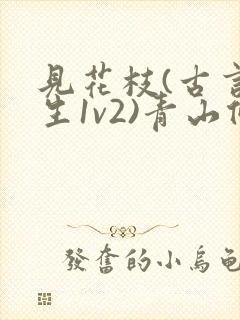 見花枝(古言
生1v2)青山
發奮的小烏龜